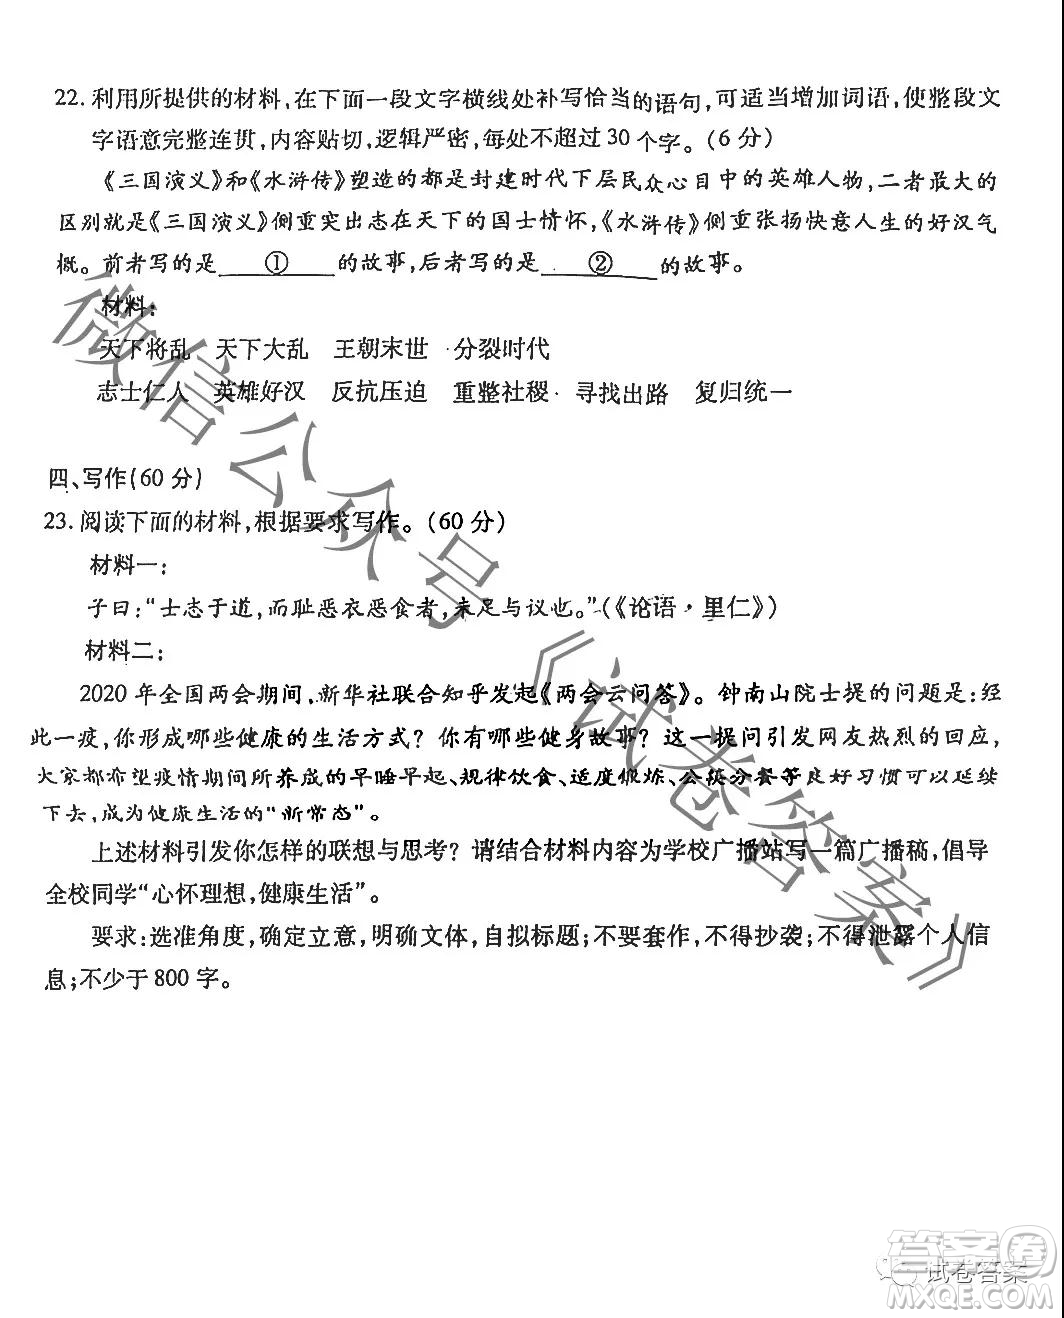 22. 利用所提供的材料,在下面一段文字横线处补写恰当的语句,可适当增加词语,使整段文
字语意完整连贯,内容贴切,逻辑严密,每处不超过30个字。(6分)
《三国演义》和《水浒传》塑造的都是封建时代下层民众心目中的英雄人物,二者最大的
区别就是《三国演义》侧重突出志在天下的国士情怀,《水浒传》侧重张扬快意人生的好汉气
概。前者写的是 ① 的故事,后者写的是 ② 的故事。
材料:
天下将乱 天下大乱 王朝末世 分裂时代
志士仁人 英雄好汉 反抗压迫 重整社稷 寻找出路 复归统一
四、写作(60分)
23. 阅读下面的材料,根据要求写作。(60分)
材料一:
子曰:“士志于道,而耻恶衣恶食者,未足与议也。”(《论语·里仁》)
材料二:
2020年全国两会期间,新华社联合知乎发起《两会云问答》。钟南山院士提的问题是:经
此一疫,你形成哪些健康的生活方式?你有哪些健身故事?这一提问引发网友热烈的回应,
大家都希望疫情期间所养成的早睡早起、规律饮食、适度锻炼、公筷分餐等良好习惯可以延续
下去,成为健康生活的“新常态”。
上述材料引发你怎样的联想与思考?请结合材料内容为学校广播站写一篇广播稿,倡导
全校同学“心怀理想,健康生活”。
要求:选准角度,确定立意,明确文体,自拟标题;不要套作,不得抄袭;不得泄露个人信
息;不少于800字。
微信公众号《试卷答案》
答案圈
试卷答案
MXQE.COM